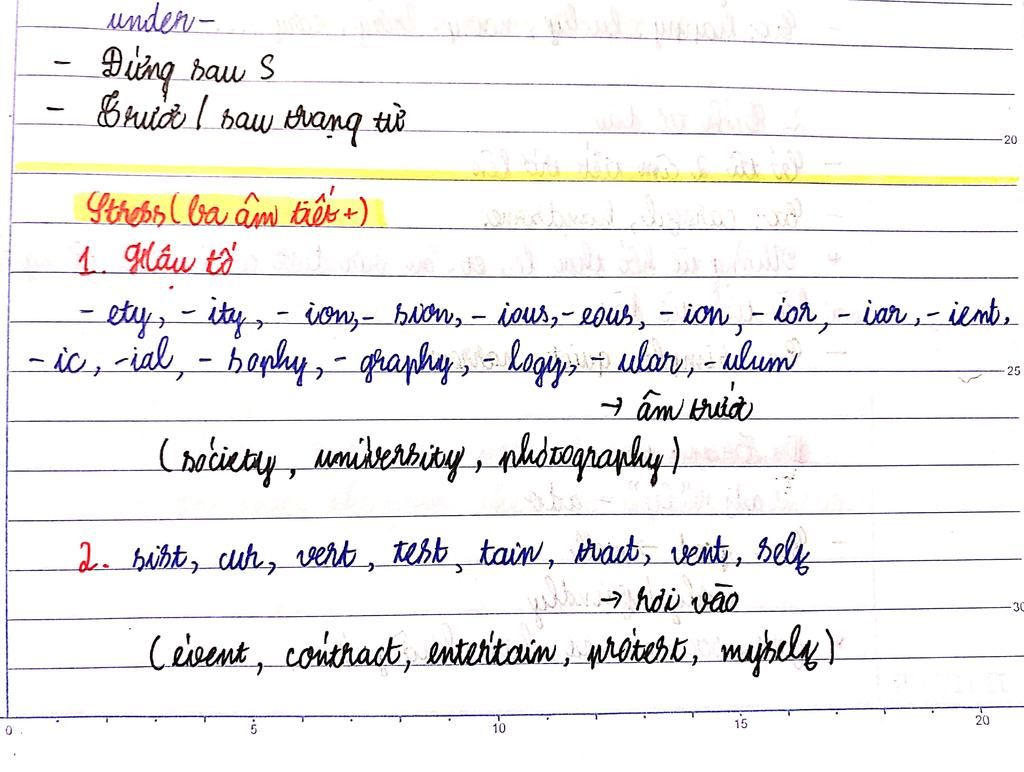 under-
- Đứng sau S
- Trước / sau trạng từ
20
Stress (ba âm tiết +)
1. Hậu tố
- ety, - ity, - ion, - sion, - ious, - eous, - ion, - ior, - iar, - ient,
- ic, -ial, - sophy, - graphy, - logy, - ular, - ulum
25
→ âm trước
(so'ciety, uni'versity, pho'tography)
2. sist, cur, vert, test, tain, tract, vent, self
→ rơi vào
30
(e'vent, con'tract, enter'tain, pro'test, my'self)
0 5 10 15 20